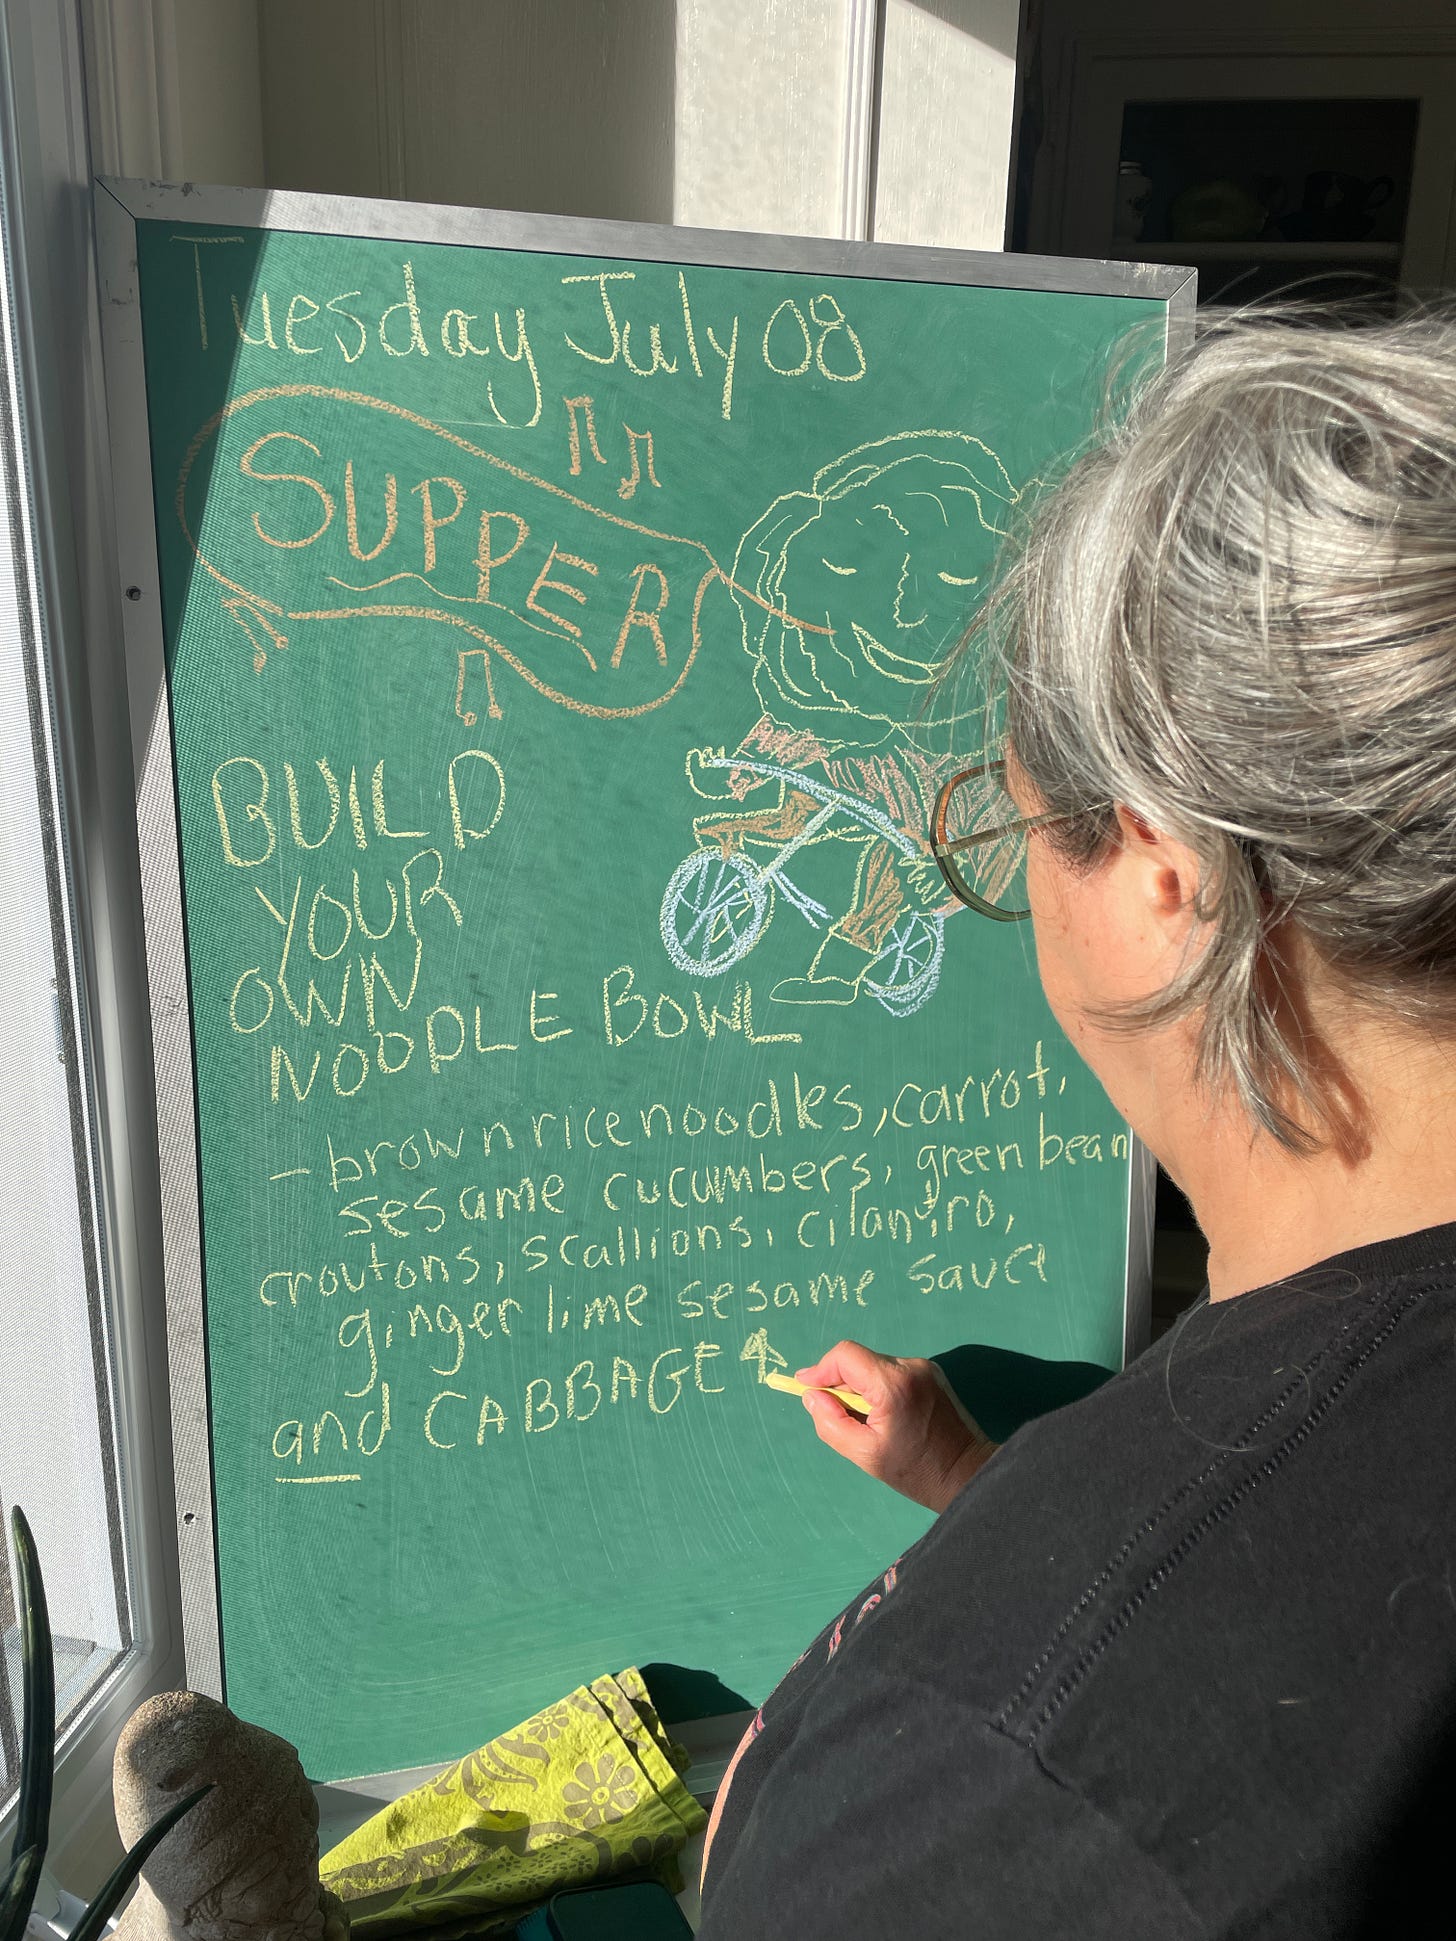 Tuesday July 08
SUPPER
BUILD
YOUR
OWN
NOODLE BOWL
– brown rice noodles, carrot,
sesame cucumbers, green bean
croutons, scallions, cilantro,
ginger lime sesame sauce
and CABBAGE